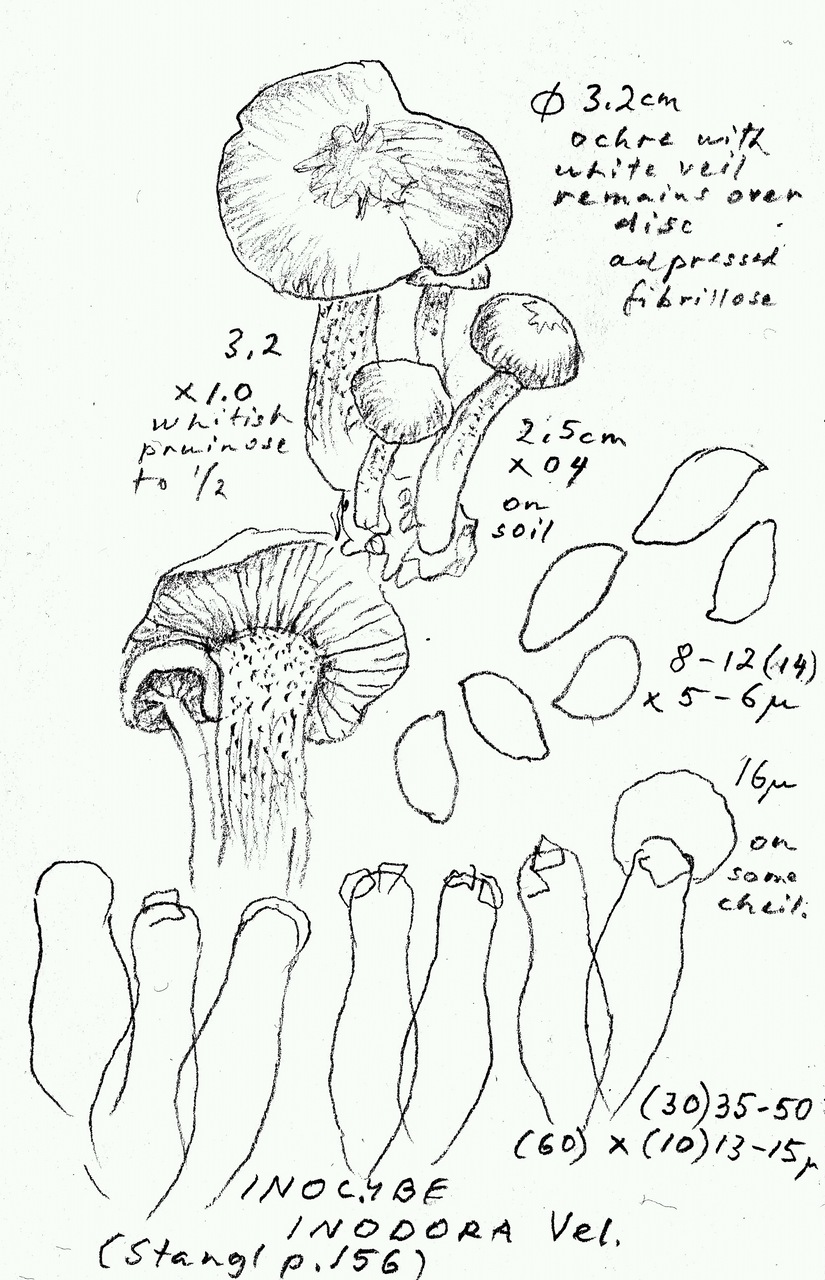 ϕ 3.2cm
ochre with
white veil
remains over
disc
adpressed
fibrillose
3,2
x 1.0
whitish
pruinose
to 1/2
2.5cm
x 04
on
soil
8-12(14)
x 5-6µ
16µ
on
some
cheil.
(30)35-50
(60) x (10)13-15µ
INOCYBE
INODORA Vel.
(Stangl p.156)